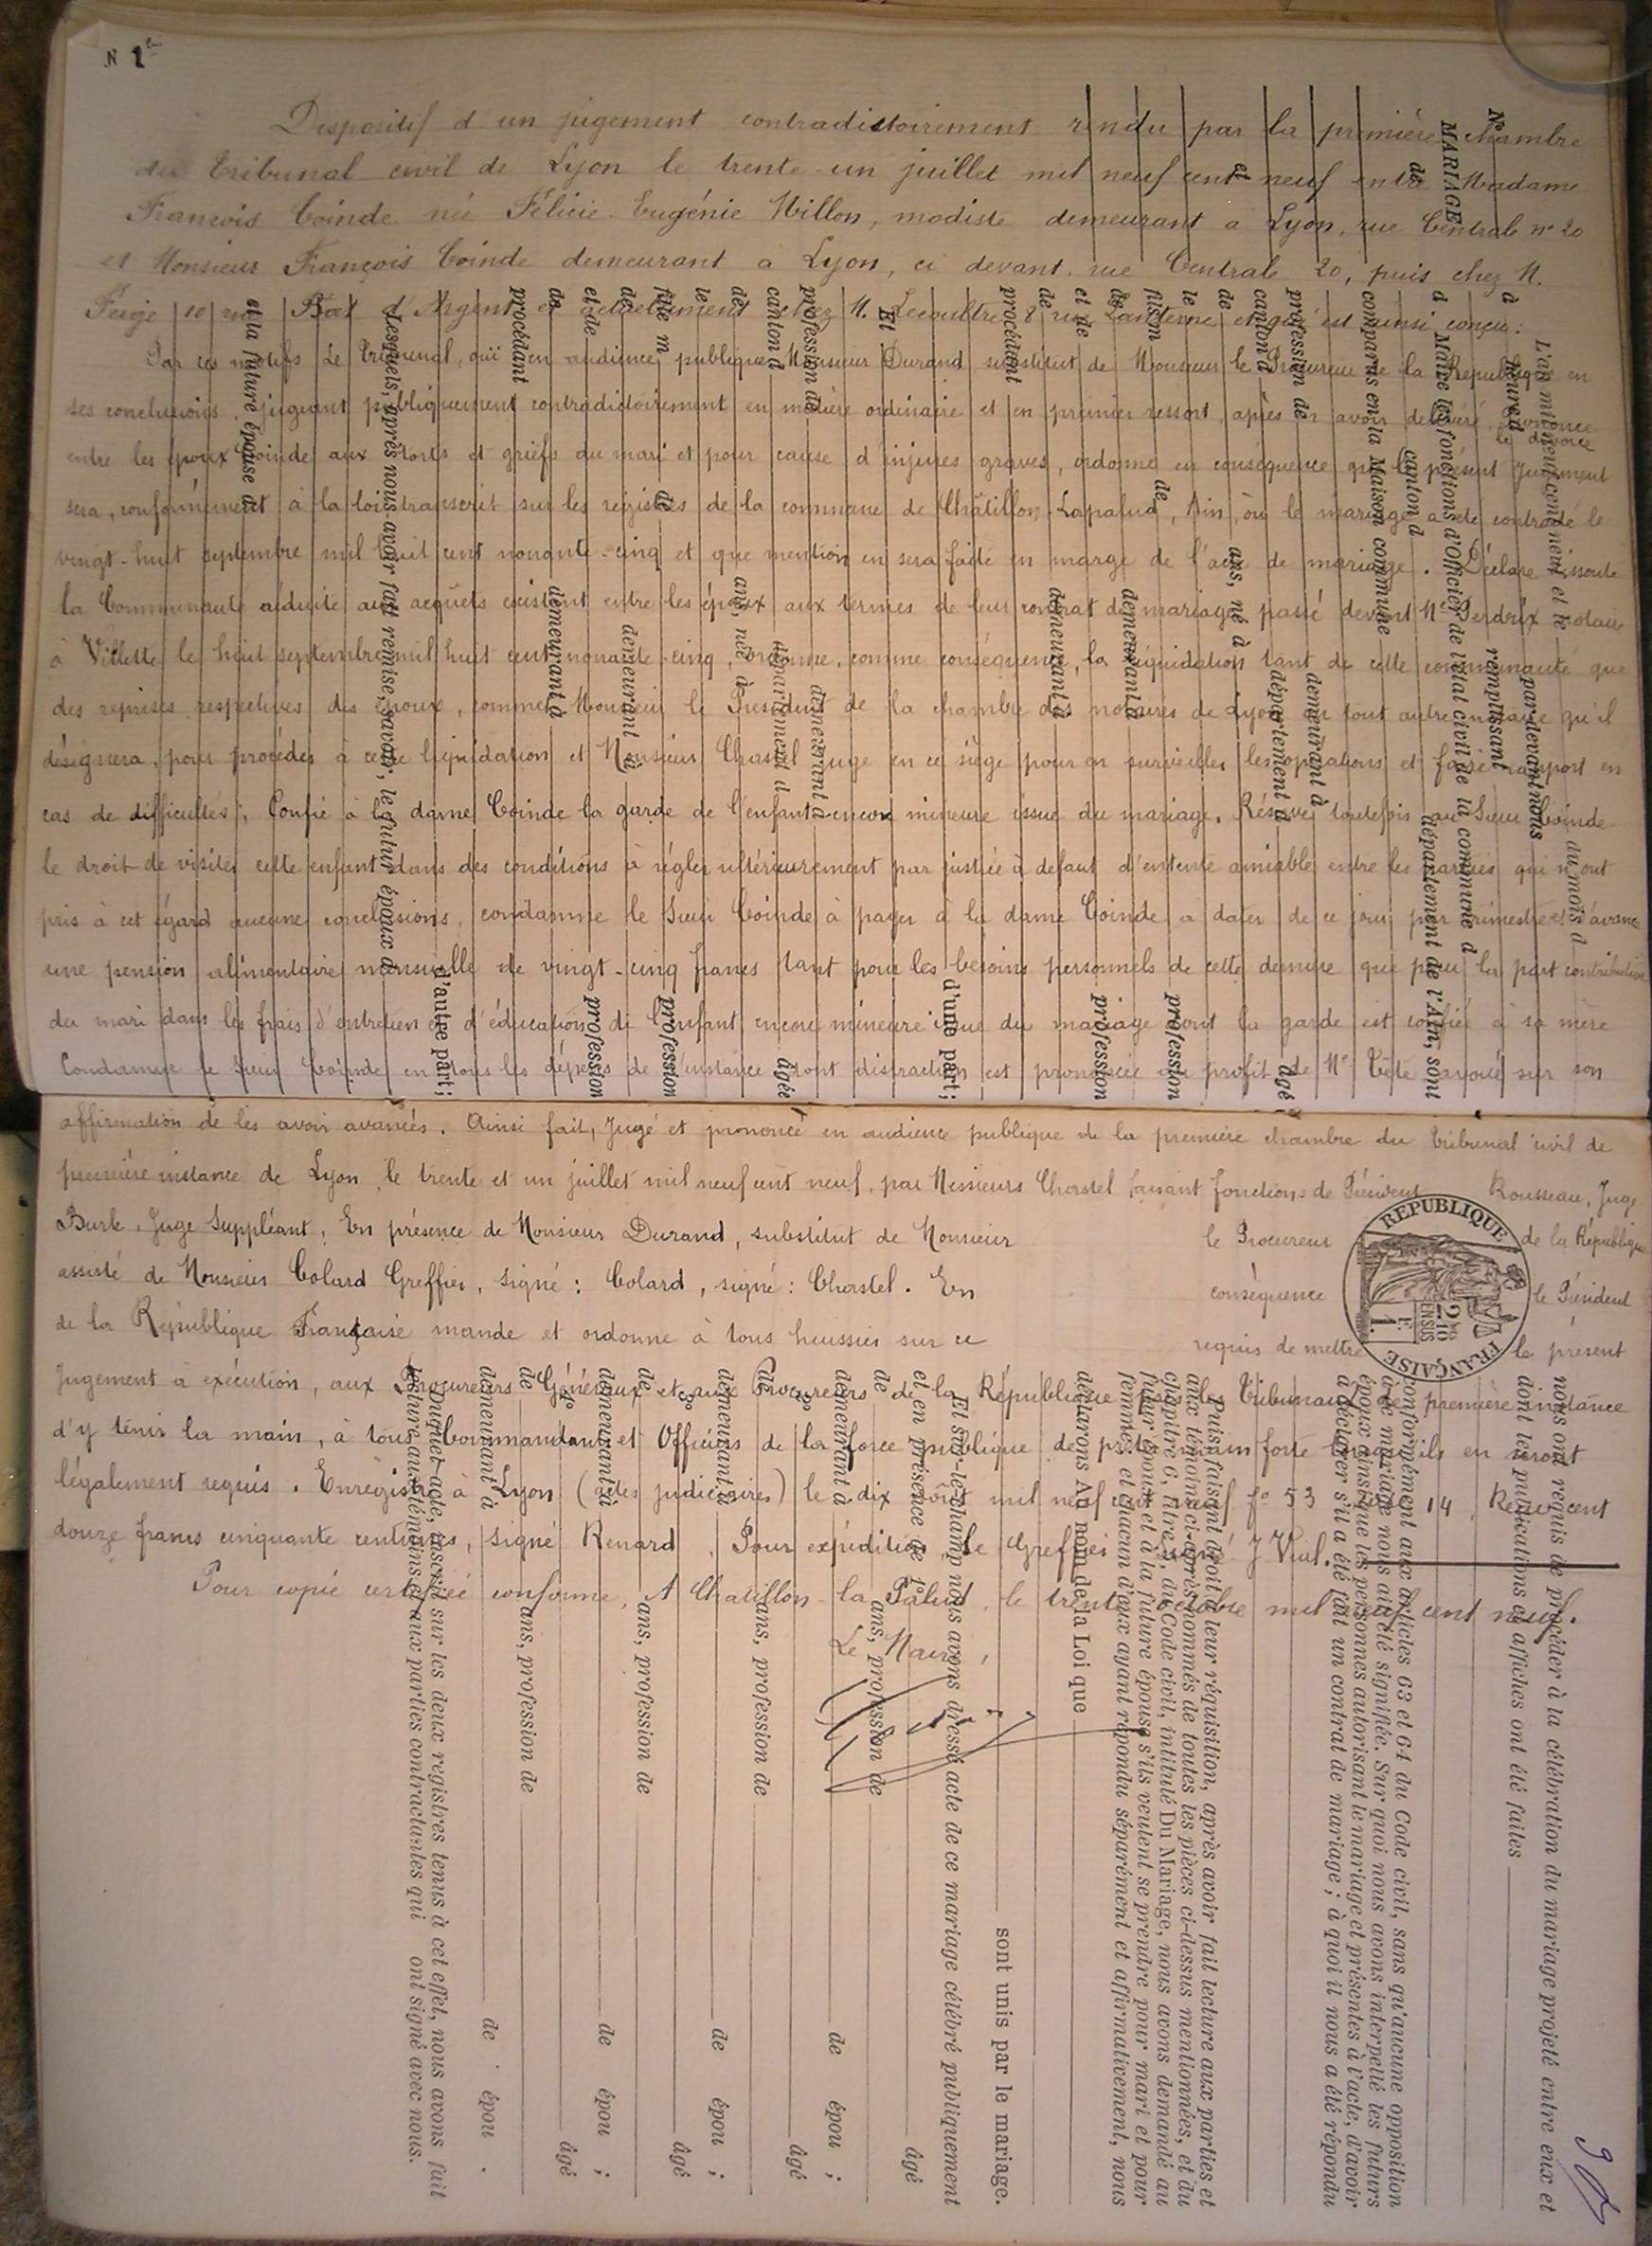 N 1er
Dispositif d'un jugement contradictoirement rendu par la première chambre
du tribunal civil de Lyon le trente-un juillet mil neuf cent neuf entre Madame
François Coinde née Félicie-Eugénie Millon, modiste demeurant à Lyon, rue Centrale n° 20
et Monsieur François Coinde demeurant à Lyon, ci devant rue Centrale 20, puis chez M.
Feige 10 rue Port d'Argent et actuellement chez M. Lecoultre 8 rue Lanterne et qui est ainsi conçu:
Par ces motifs Le Tribunal, ouï en audience publique Monsieur Durand, substitut de Monsieur le Procureur de la République en
ses conclusions, jugeant publiquement contradictoirement en matière ordinaire et en premier ressort, après en avoir délibéré, Prononce
le divorce
entre les époux Coinde aux torts et griefs du mari et pour cause d'injures graves, ordonne en conséquence que le présent jugement
sera, conformément à la loi transcrit sur les registres de la commune de Châtillon-Lapalud, Ain, où le mariage a été contracté le
vingt-huit septembre mil huit cent nonante-cinq et que mention en sera faite en marge de l'acte de mariage. Déclare dissoute
la Communauté réduite aux acquets existent entre les époux aux termes de leur contrat de mariage passé devant Me Perdrix notaire
à Villette le huit septembre mil huit cent nonante-cinq, ordonne, comme conséquence, la liquidation tant de cette communauté que
des reprises respectives des époux, commet Monsieur le Président de la chambre des notaires de Lyon ou tout autre notaire qu'il
désignera, pour procéder à cette liquidation et Monsieur Chastel juge en ce siège pour en surveiller les opérations et faire rapport en
cas de difficultés; Confie à la dame Coinde la garde de l'enfant encore mineure issue du mariage. Réserve toutefois au Sieur Coinde
le droit de visiter cette enfant dans des conditions à régler ultérieurement par justice à défaut d'entente amiable entre les parties qui n'ont
pris à cet égard aucune conclusions, condamne le Sieur Coinde à payer à la dame Coinde à dater de ce jour par trimestre et d'avance
une pension alimentaire mensuelle de vingt-cinq francs tant pour les besoins personnels de cette dernière que pour la part contributive
du mari dans les frais d'entretien et d'éducation de l'enfant encore mineure issue du mariage dont la garde est confiée à sa mère
Condamne le Sieur Coinde en tous les dépens de l'instance dont distraction est prononcée au profit de Me Tête avoué sur son
affirmation de les avoir avancés. Ainsi fait, Jugé et prononcé en audience publique de la première chambre du tribunal civil de
première instance de Lyon le trente et un juillet mil neuf cent neuf, par Messieurs Chastel faisant fonctions de Président Rousseau, Juge
Burle, Juge Suppléant, En présence de Monsieur Durand, substitut de Monsieur le Procureur de la République
assisté de Monsieur Colard Greffier, signé: Colard, signé: Chastel. En conséquence le Président
de la République Française mande et ordonne à tous huissiers sur ce requis de mettre le présent
Jugement à exécution, aux Procureurs Généraux et aux Procureurs de la République près les Tribunaux de première instance
d'y tenir la main, à tous Commandants et Officiers de la force publique de prêter main forte lorsqu'ils en seront
légalement requis. Enregistré à Lyon (actes judiciaires) le dix août mil neuf cent neuf fo 53 14 Reçu cent
douze francs cinquante centimes, signé Renard. Pour expédition, Le Greffier signé J Vial.
Pour copie certifiée conforme, A Chatillon-la Palud, le trente octobre mil neuf cent neuf.
Le Maire,
RÉPUBLIQUE FRANÇAISE
2 10 EN SUS
F. 1.
N°
MARIAGE
de
et
L'an mil neuf cent et le du mois d
à heure d par-devant nous
remplissant
à Maire les fonctions d'Officier de l'état civil de la commune d
canton d département de l'Ain, sont
comparus en la Maison commune
profession de demeurant à
canton d département d âgé
de ans, né à
le
fils m de profession
de demeurant à
et de profession
de demeurant à
procédant
d'une part;
Et
profession de demeurant à
canton d département d âgée
de ans, née à
le
fille m de profession
de demeurant à
et de profession
de demeurant à
procédant
d'autre part;
Lesquels, après nous avoir fait remise, savoir, le futur époux d
et la future épouse d
nous ont requis de procéder à la célébration du mariage projeté entre eux et
dont les publications et affiches ont été faites
conformément aux articles 63 et 64 du Code civil, sans qu'aucune opposition
à ce mariage nous ait été signifiée. Sur quoi nous avons interpellé les futurs
époux ainsi que les personnes autorisant le mariage et présentes à l'acte, d'avoir
à déclarer s'il a été fait un contrat de mariage; à quoi il nous a été répondu
Puis, faisant droit à leur réquisition, après avoir fait lecture aux parties et
aux témoins ci-après nommés de toutes les pièces ci-dessus mentionnées, et du
chapitre 6, titre 5, du Code civil, intitulé Du Mariage, nous avons demandé au
futur époux et à la future épouse s'ils veulent se prendre pour mari et pour
femme; et chacun d'eux ayant répondu séparément et affirmativement, nous
déclarons Au nom de la Loi que
sont unis par le mariage.
Et sur-le-champ nous avons dressé acte de ce mariage célébré publiquement
et en présence de 1° âgé
de ans, profession de
demeurant à de épou ;
2° âgé
de ans, profession de
demeurant à de épou ;
3° âgé
de ans, profession de
demeurant à de épou ;
4° âgé
de ans, profession de
demeurant à de épou .
Duquel acte, inscrit sur les deux registres tenus à cet effet, nous avons fait
lecture aux témoins et aux parties contractantes qui ont signé avec nous.